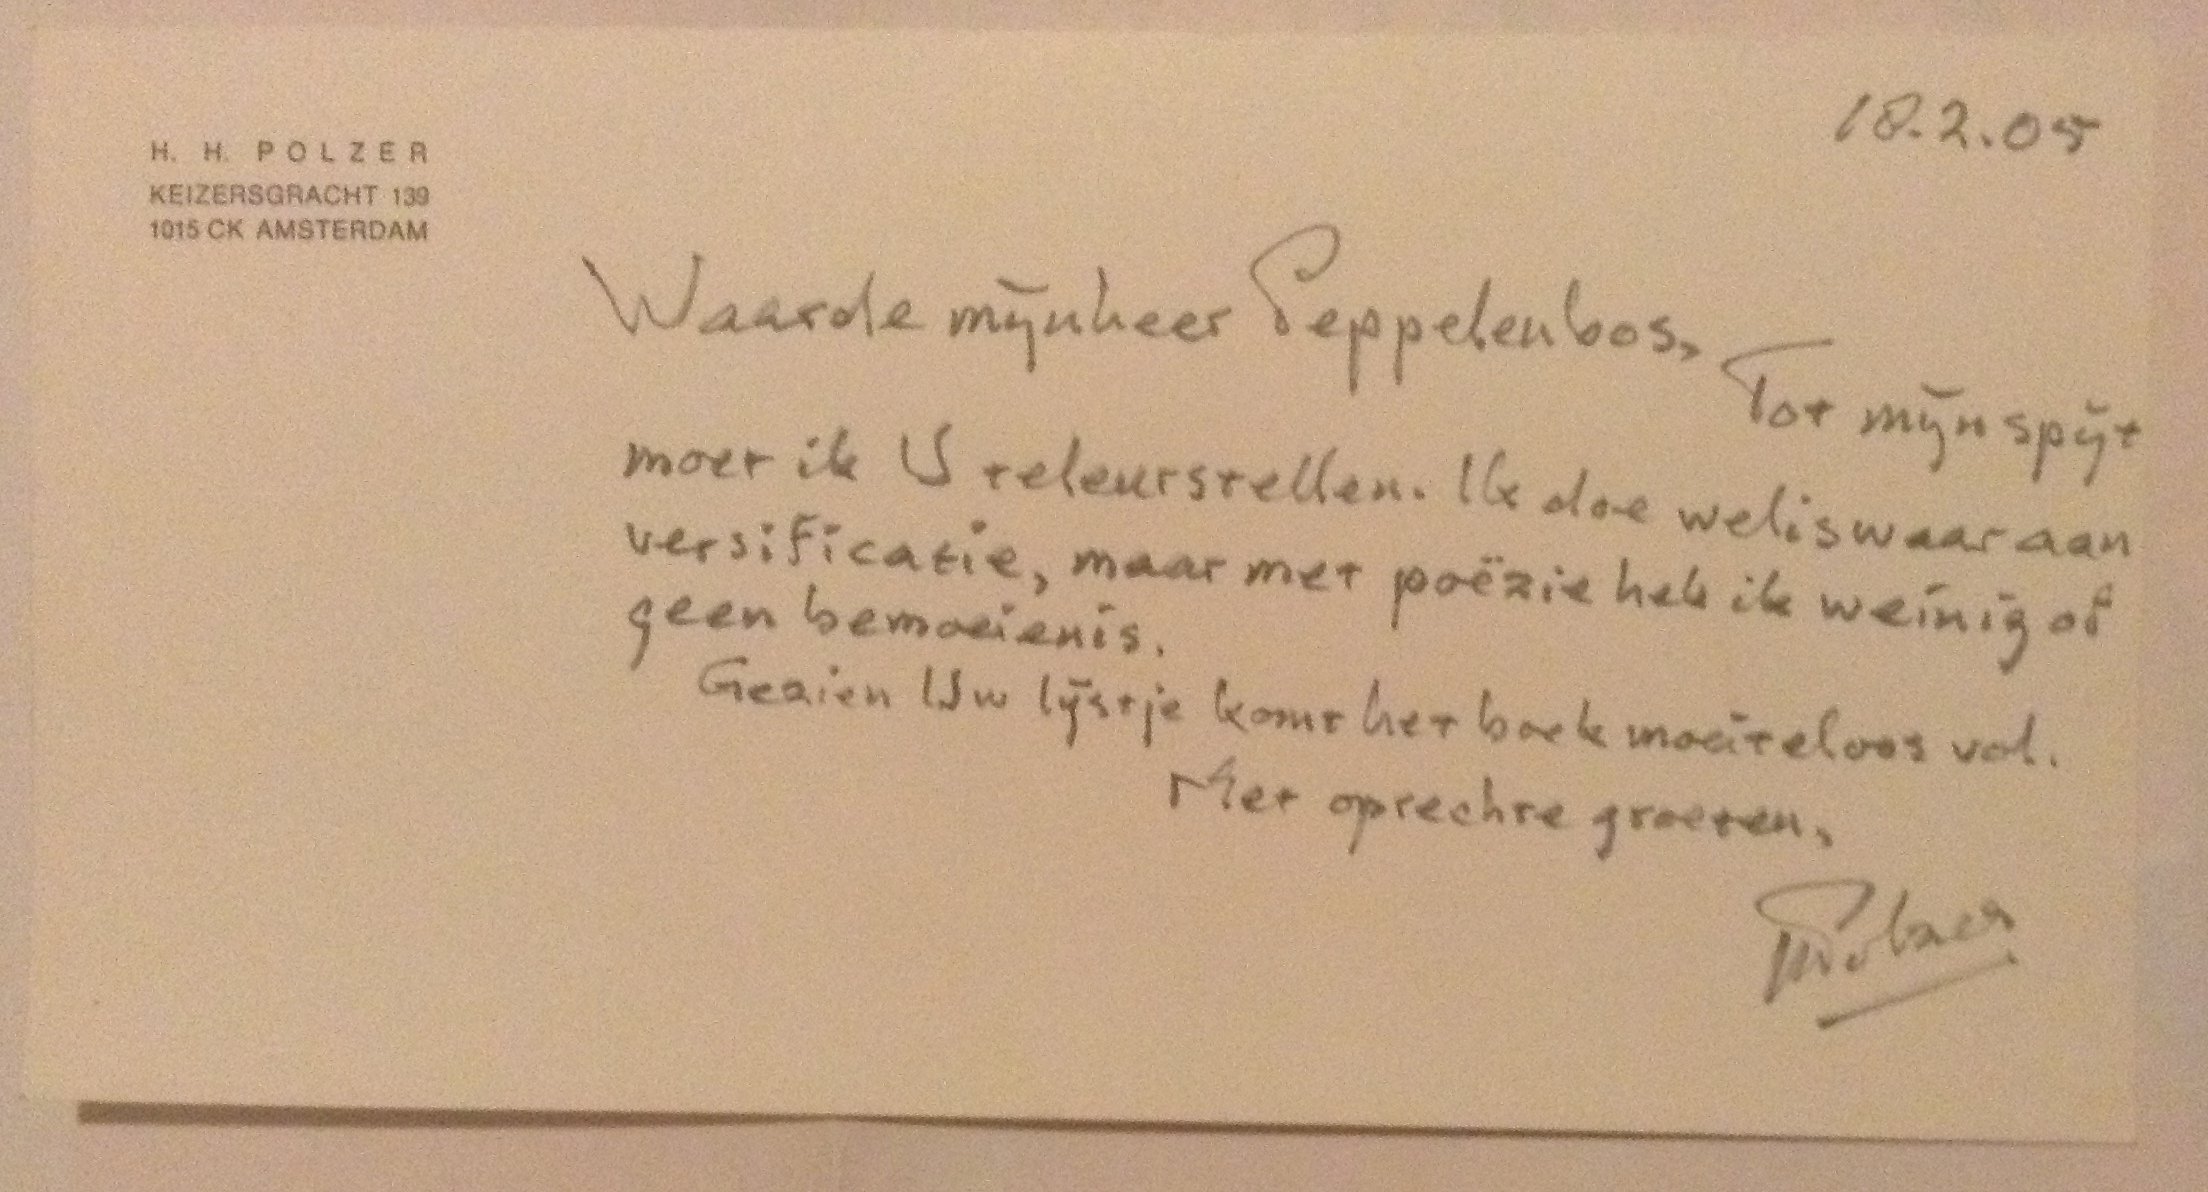 18.2.05
H. H. POLZER
KEIZERSGRACHT 139
1015 CK AMSTERDAM
Waarde mijnheer Peppelenbos,
Tot mijn spijt
moet ik U teleurstellen. Ik doe weliswaar aan
versificatie, maar met poëzie heb ik weinig of
geen bemoeienis.
Gezien Uw lijstje komt het boek moeiteloos vol.
Met oprechte groeten,
HPolzer